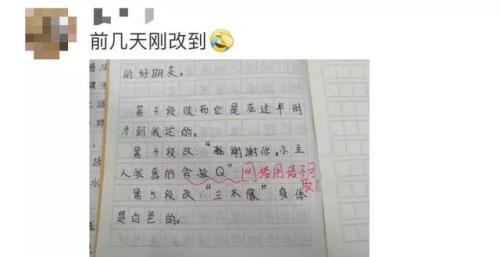 前几天刚改到🤣
的好朋友。
第3段改:而它是在过年时
才到我这的。
第4段改:“谢谢你,小主
人我真的会栓Q”
网络用语不可
取!
第5段改:“三不像”身体
是白色的。